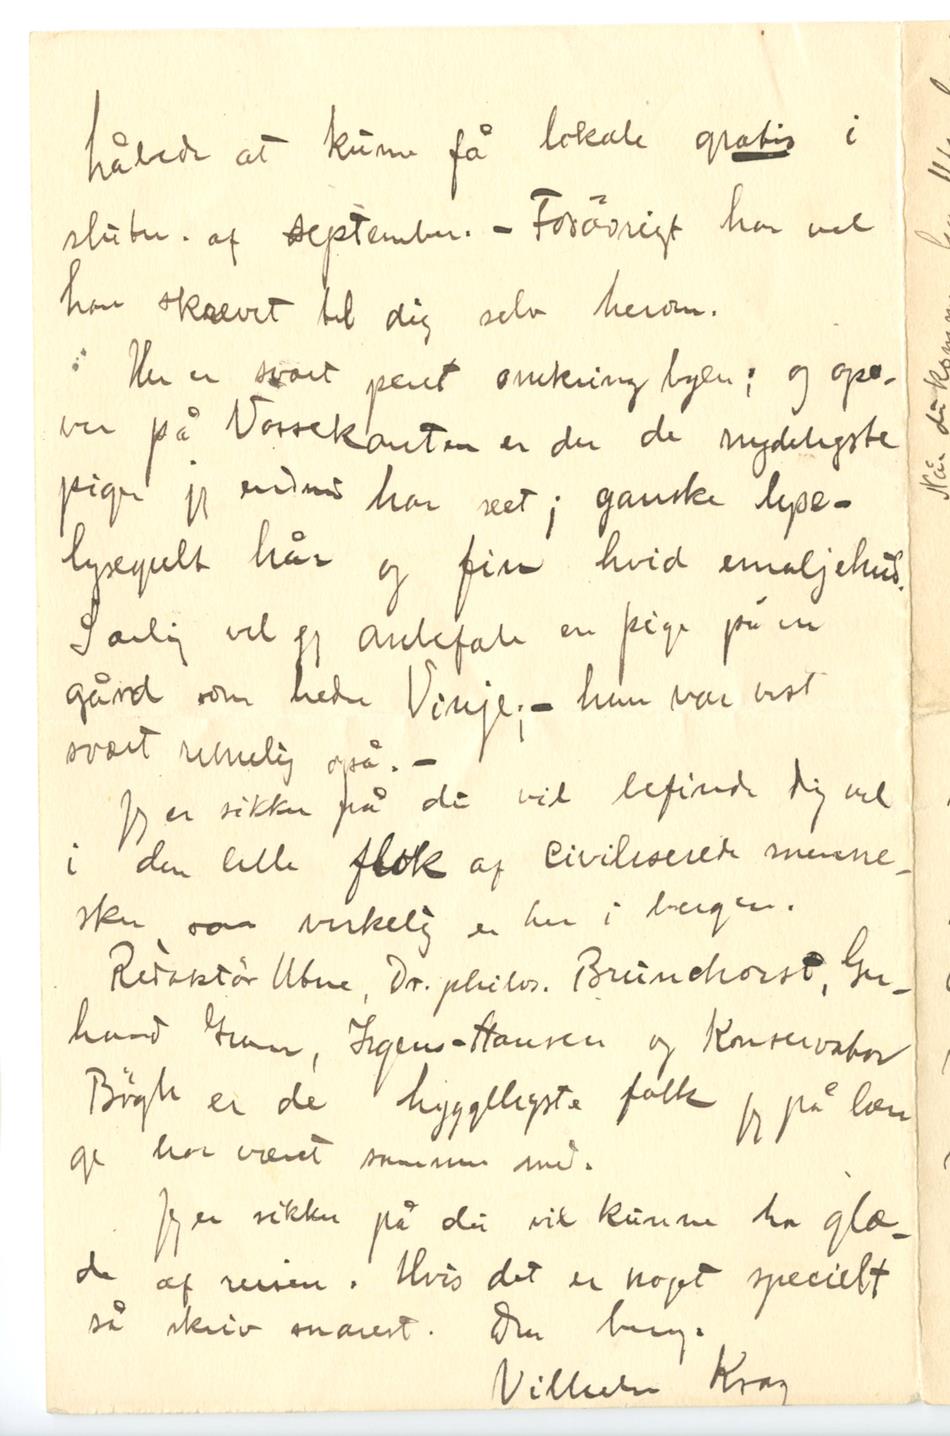 håbede at kunne få lokale gratis i
slutn. af september. – Forövrigt har vel
han skrevet til dig selv herom.
Her er svært pent omkring byen; og opo-
ver på Vossekanten er der de nydeligste
piger jg endnu har seet; ganske lyse-
lysegult hår og fin hvid emaljehud.
Særlig vil jg anbefale en pige på en
gård som heder Vinje; – hun var vist
svært rimelig også. –
Jg er sikker på du vil befinde dig vel
i den lille flok af civiliserede menne-
sker som virkelig er her i bergen.
Redaktör Ubne, Dr. philos. Brunchorst, Ger-
hard Gran, Irgens-Hansen og Konservator
Bögh er de hyggeligste folk jg på læn
ge har været sammen med.
Jg er sikker på du vil kunne ha glæ-
de af reisen. Hvis det er noget specielt
så skriv snarest. Din heng.
Vilhelm Krag
Når du kommer